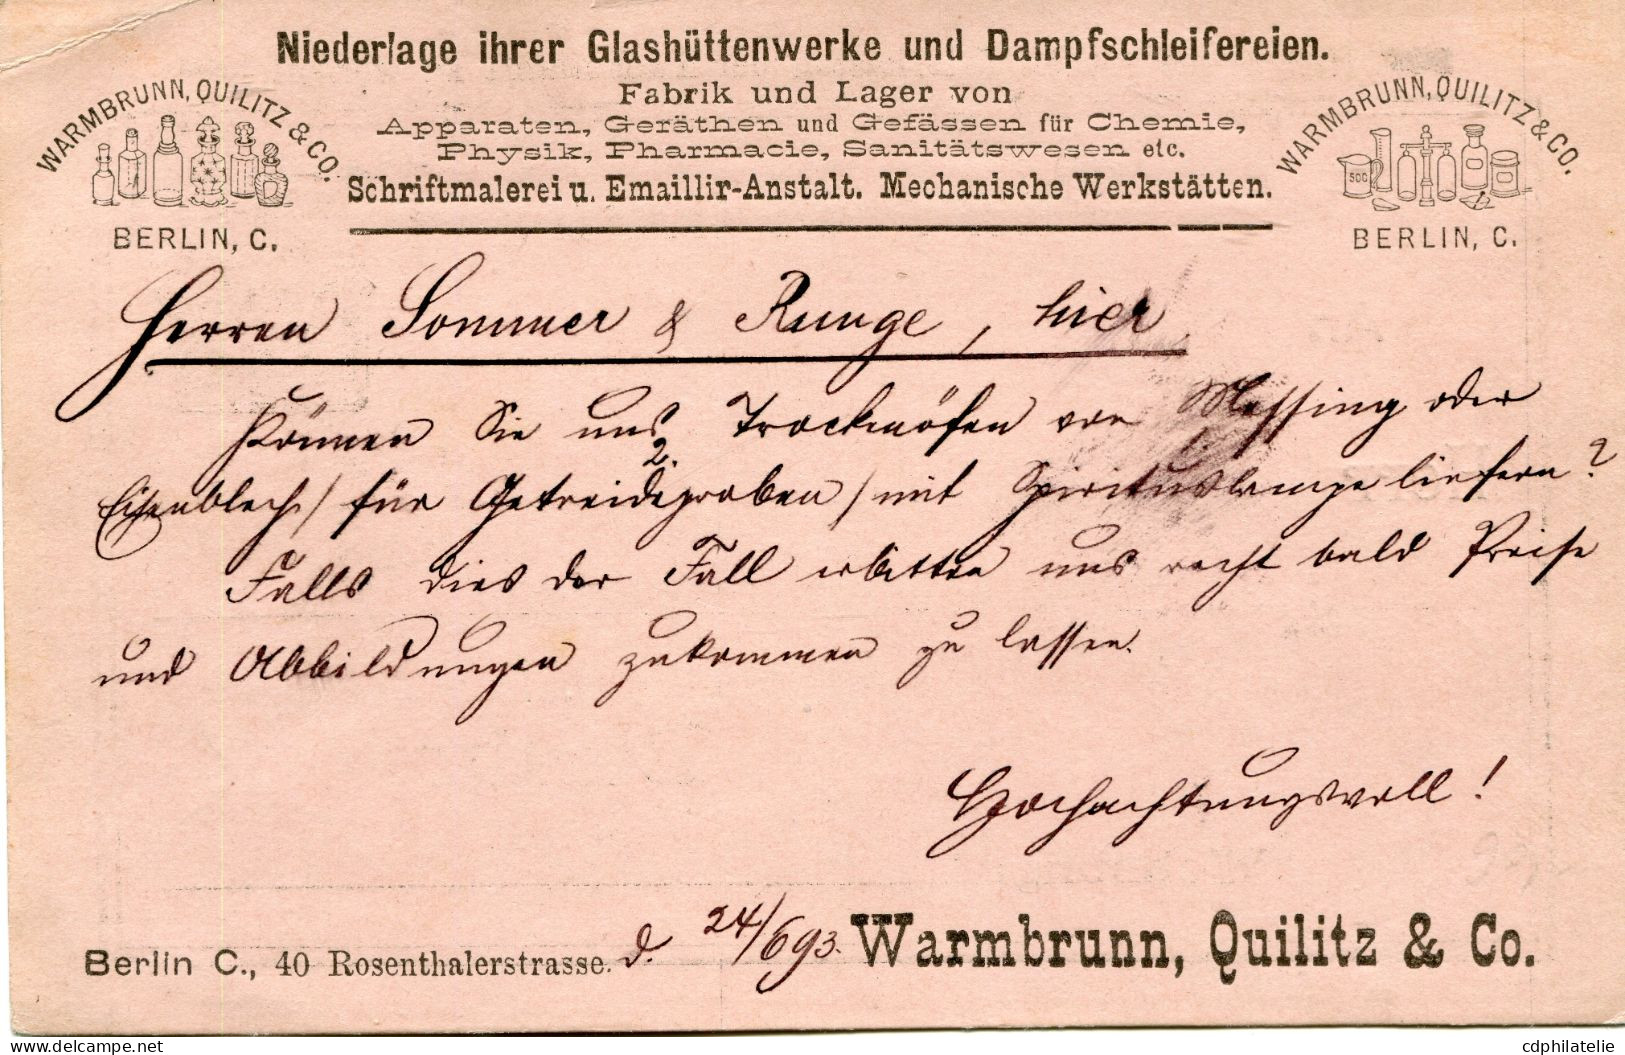 Niederlage ihrer Glashüttenwerke und Dampfschleifereien.
Fabrik und Lager von
Apparaten, Geräthen und Gefässen für Chemie,
Physik, Pharmacie, Sanitätswesen etc.
Schriftmalerei u. Emaillir-Anstalt. Mechanische Werkstätten.
WARMBRUNN, QUILITZ & CO.
BERLIN, C.
WARMBRUNN, QUILITZ & CO.
500
BERLIN, C.
Herren Sommer & Runge, hier
Können Sie uns Trockenöfen von Messing oder
Eisenblech / für 2. Getreideproben / mit Spirituslampe liefern?
Falls dies der Fall erbitten uns recht bald Preise
und Abbildungen zukommen zu lassen.
Hochachtungsvoll!
Berlin C., 40 Rosenthalerstrasse. d. 24/6 93. Warmbrunn, Quilitz & Co.
delcampe.net
cdphilatelie